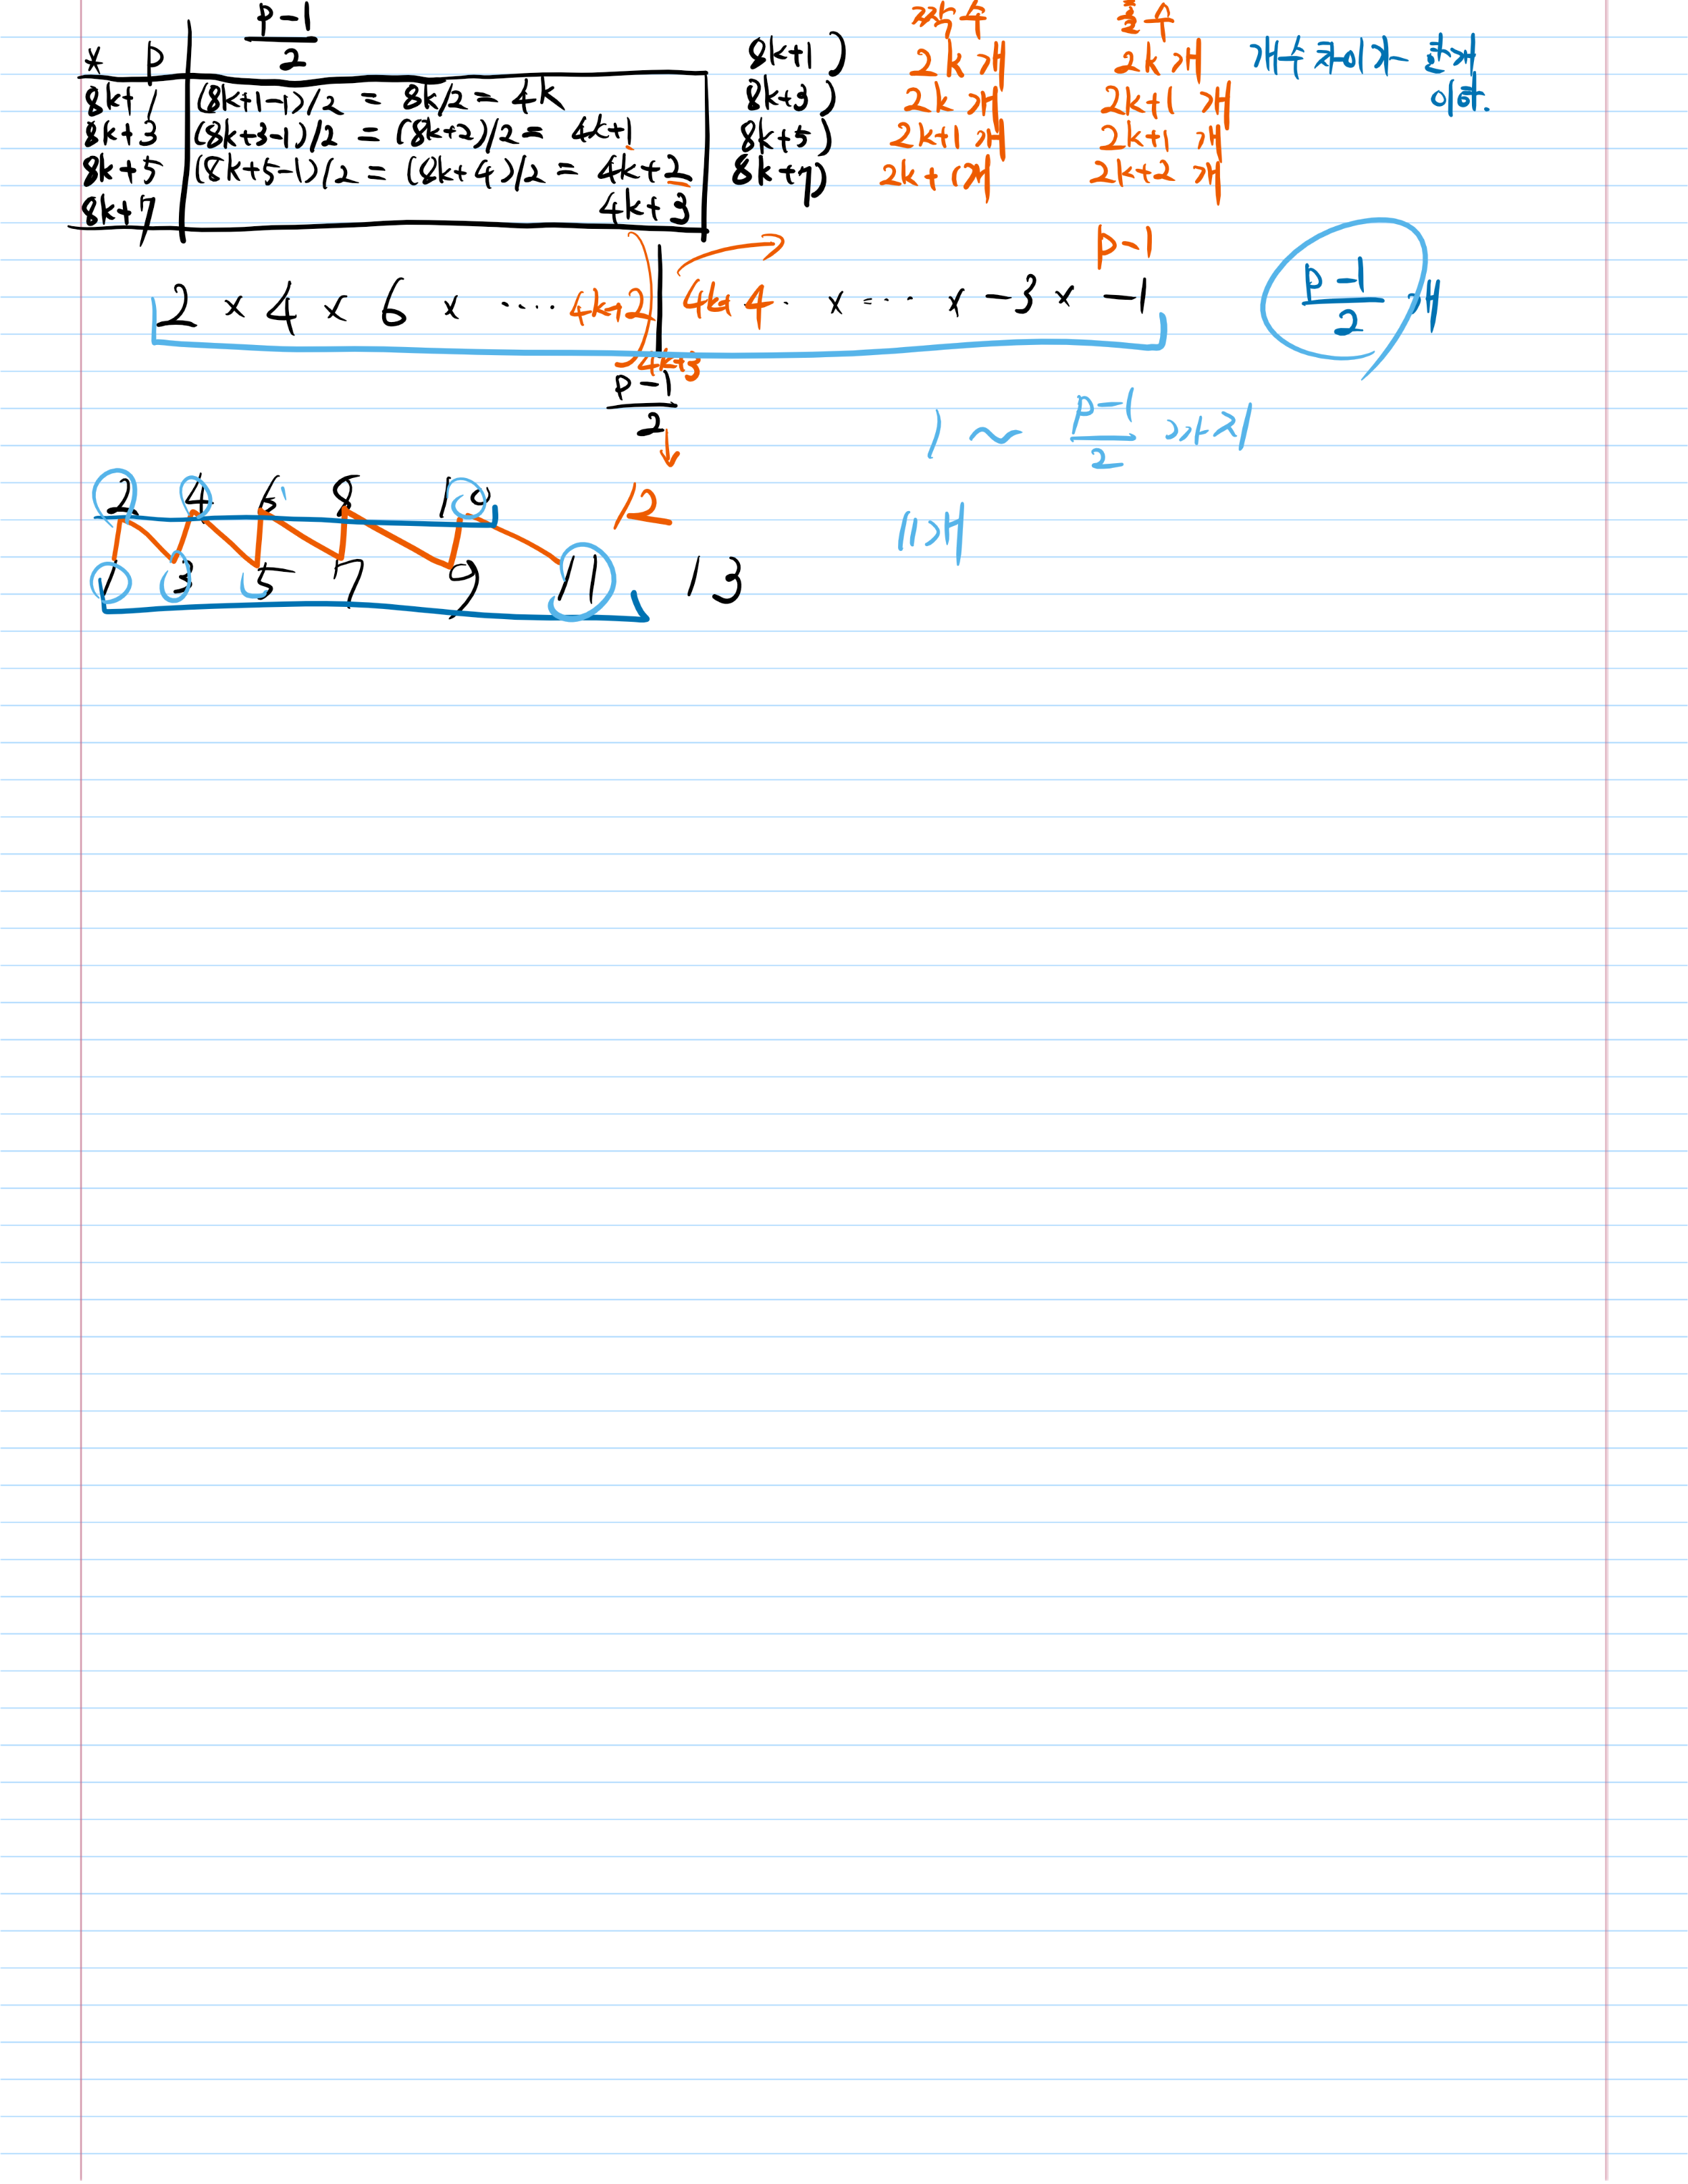 * p  p-1/2
8k+1  (8k+1-1)/2 = 8k/2 = 4k
8k+3  (8k+3-1)/2 = (8k+2)/2 = 4k+1
8k+5  (8k+5-1)/2 = (8k+4)/2 = 4k+2
8k+7  4k+3
짝수  홀수
8k+1)  2k개  2k개  개수 차이가 존재
8k+3)  2k개  2k+1개  이유.
8k+5)  2k+1개  2k+1개
8k+7)  2k+1개  2k+2개
p-1
2 × 4 × 6 × ····· 4k+2 | 4k+4 · × -·· × -3 × -1  p-1/2 개
4k+3
p-1/2
1 ~ p-1/2 까지
2 4 6 8 10 12  11개
1 3 5 7 9 11 13